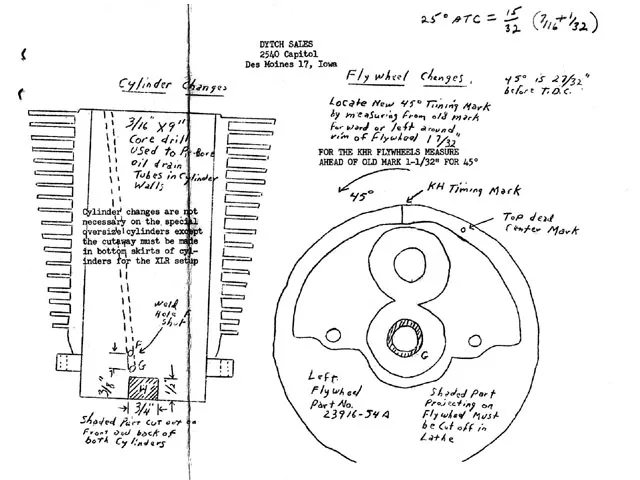 25° ATC = 15/32 (7/16 + 1/32)
DYTCH SALES
2540 Capitol
Des Moines 17, Iowa
Cylinder Changes
3/16" X 9"
Core drill
Used to Pre-Bore
oil drain
Tubes in Cylinder
Walls
Cylinder changes are not
necessary on the special
oversize cylinders except
the cutaway must be made
in bottom skirts of cyl-
inders for the XLR setup
Weld
Hole F
Shut
F
G
H
3/8"
1/2"
3/4"
Shaded Part cut out on
Front and back of
both Cylinders
Flywheel Changes.
45° is 27/32"
before T.D.C.
Locate New 45° Timing Mark
by measuring from old mark
forward or left around
rim of Flywheel 1 7/32"
FOR THE KHR FLYWHEELS MEASURE
AHEAD OF OLD MARK 1-1/32" FOR 45°
45°
KH Timing Mark
Top dead
Center Mark
G
Left
Flywheel
Part No.
23916-54A
Shaded Part
Projecting on
Flywheel Must
be Cut off in
Lathe